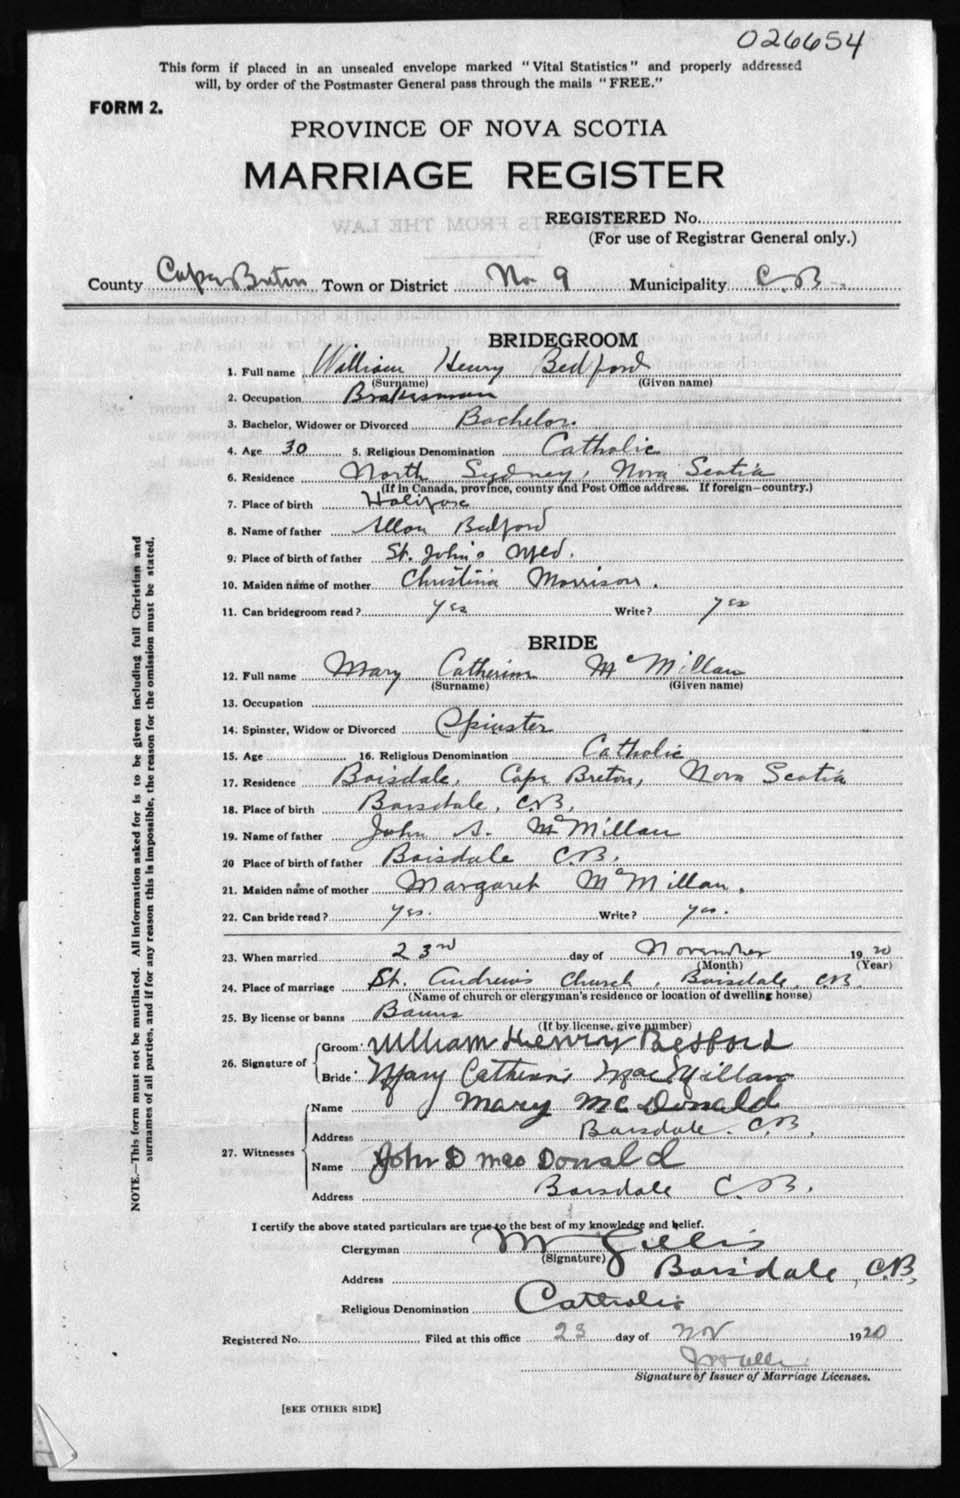 026654
This form if placed in an unsealed envelope marked "Vital Statistics" and properly addressed
will, by order of the Postmaster General pass through the mails "FREE."
FORM 2.
PROVINCE OF NOVA SCOTIA
MARRIAGE REGISTER
REGISTERED No.
(For use of Registrar General only.)
County Cape Breton Town or District No 9 Municipality C.B.
BRIDEGROOM
1. Full name William Henry Bedford
(Surname) (Given name)
2. Occupation Brakesman
3. Bachelor, Widower or Divorced Bachelor.
4. Age 30 5. Religious Denomination Catholic
6. Residence North Sydney, Nova Scotia
(If in Canada, province, county and Post Office address. If foreign—country.)
7. Place of birth Halifax
8. Name of father Allan Bedford
9. Place of birth of father St. John's Nfld.
10. Maiden name of mother Christina Morrison.
11. Can bridegroom read? yes Write? yes
BRIDE
12. Full name Mary Catherine McMillan
(Surname) (Given name)
13. Occupation
14. Spinster, Widow or Divorced Spinster
15. Age 16. Religious Denomination Catholic
17. Residence Boisdale, Cape Breton, Nova Scotia
18. Place of birth Boisdale, C.B.
19. Name of father John S. McMillan
20 Place of birth of father Boisdale C.B.
21. Maiden name of mother Margaret McMillan.
22. Can bride read? yes. Write? yes.
23. When married 23rd day of November 1920
(Month) (Year)
24. Place of marriage St. Andrew's Church, Boisdale, C.B.
(Name of church or clergyman's residence or location of dwelling house)
25. By license or banns Banns
(If by license, give number)
26. Signature of
Groom William Henry Bedford
Bride Mary Catherine MacMillan
27. Witnesses
Name Mary McDonald
Address Boisdale, C.B.
Name John D McDonald
Address Boisdale C.B.
I certify the above stated particulars are true to the best of my knowledge and belief.
Clergyman M Gillis
(Signature)
Address Boisdale, C.B.
Religious Denomination Catholic
Registered No. Filed at this office 23 day of Nov 1920
Signature of Issuer of Marriage Licenses.
[SEE OTHER SIDE]
NOTE.—This form must not be mutilated. All information asked for is to be given including full Christian and
surnames of all parties, and if for any reason this is impossible, the reason for the omission must be stated.